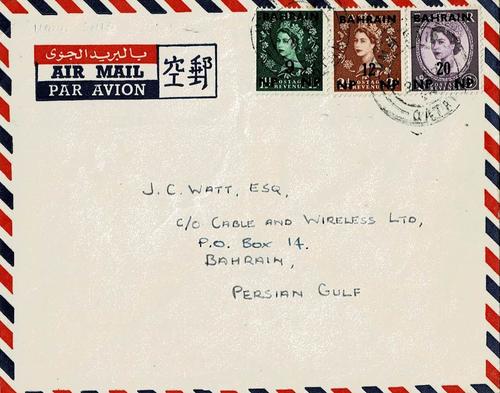 بالبريد الجوي
AIR MAIL
PAR AVION
空郵
BAHRAIN
9
NP
POSTAGE
REVENUE
BAHRAIN
12
NP NP
POSTAGE
REVENUE
BAHRAIN
20
NP NP
QATAR
J. C. WATT, ESQ,
C/O CABLE AND WIRELESS LTD,
P.O. BOX 14.
BAHRAIN,
PERSIAN GULF